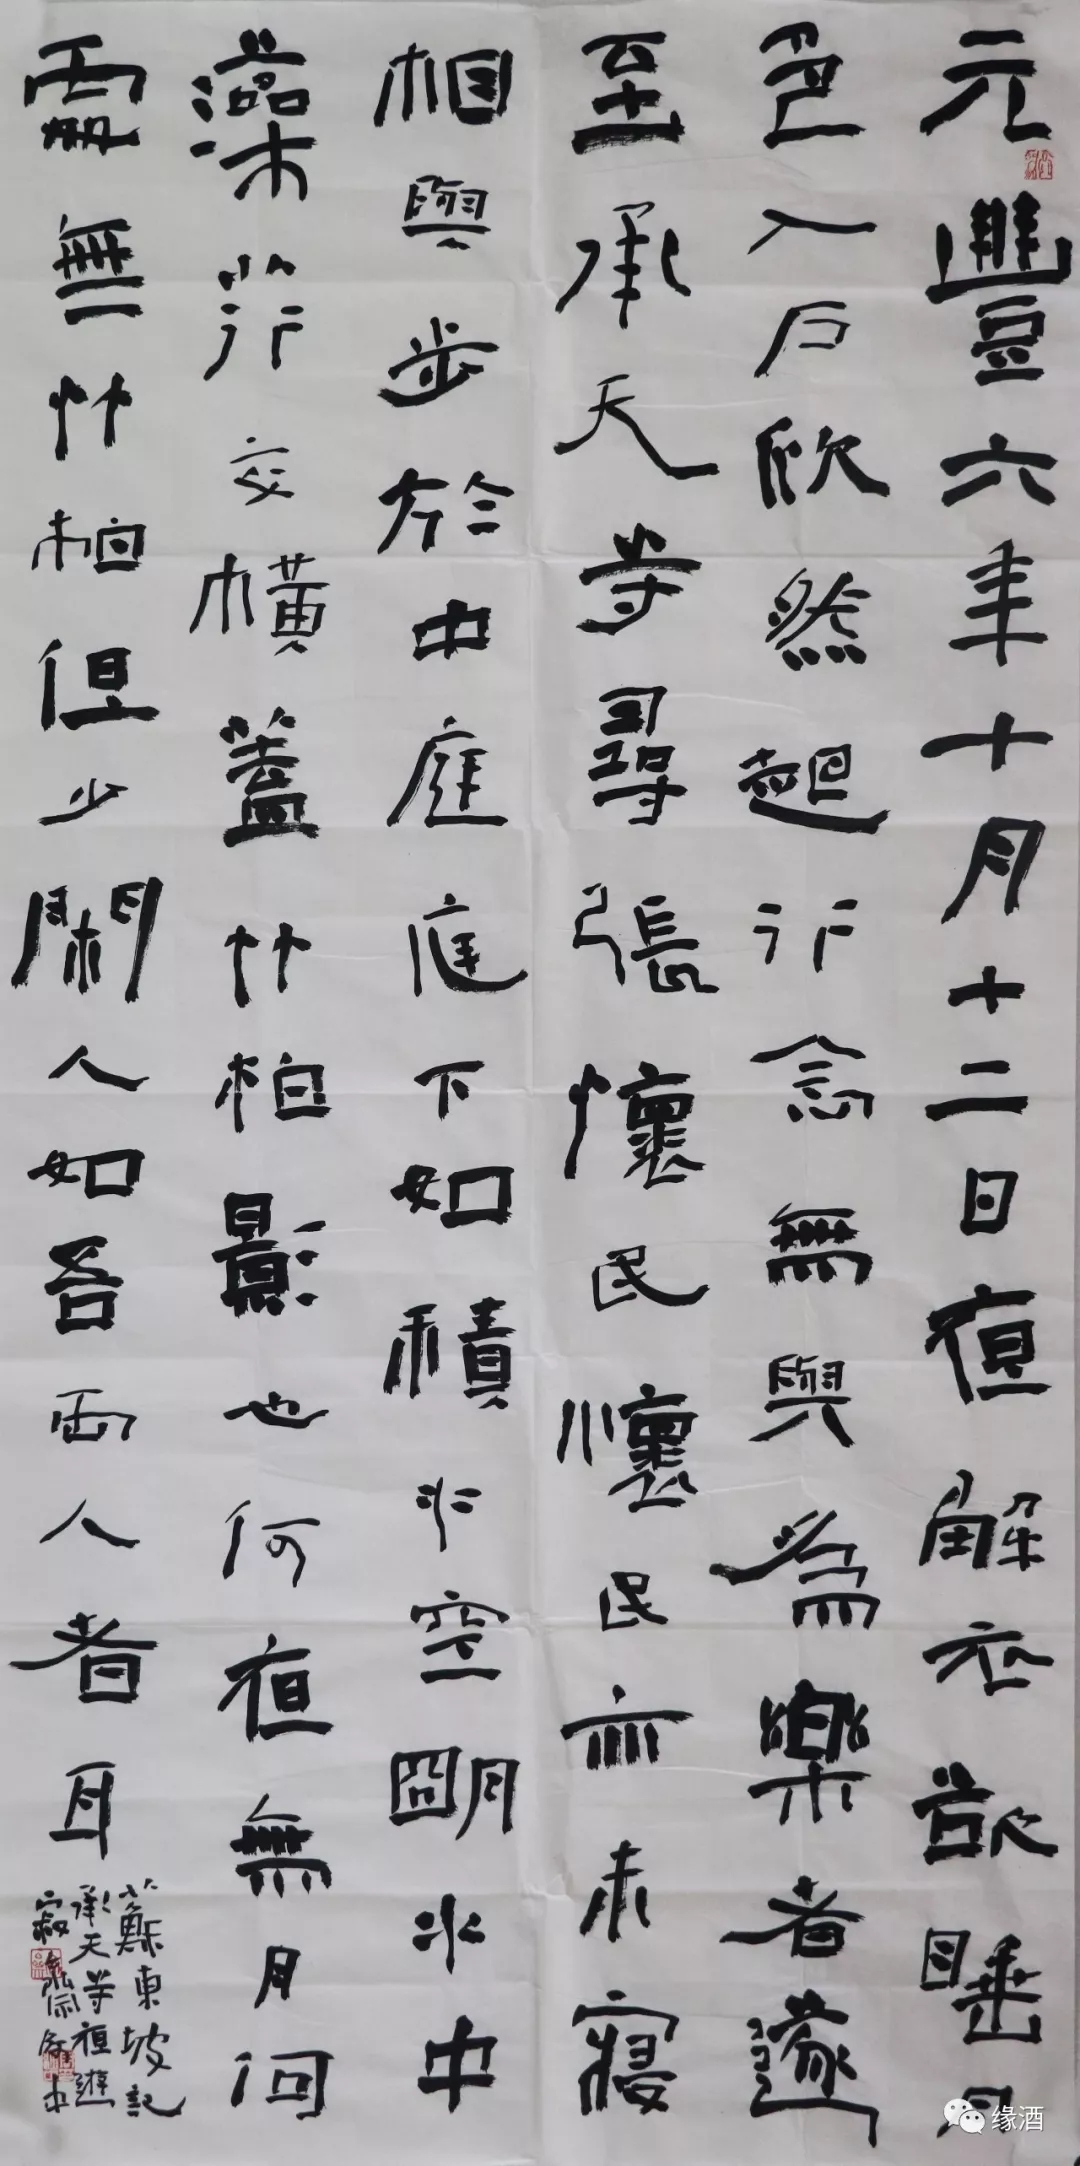 元豐六年十月十二日夜解衣欲睡月
色入戶欣然起行念無與為樂者遂
至承天寺尋張懷民懷民亦未寢
相與步於中庭庭下如積水空明水中
藻荇交橫蓋竹柏影也何夜無月何
處無竹柏但少閑人如吾兩人者耳
蘇東坡記
承天寺夜遊
缘酒